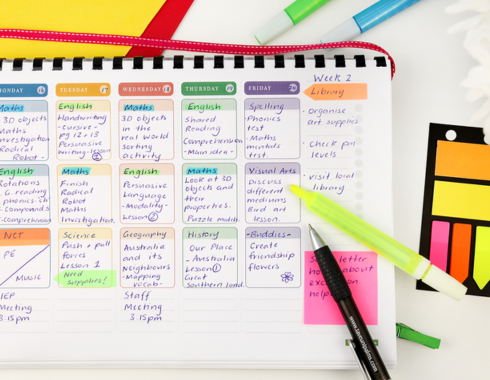 Week 2
MONDAY 16
Maths
3D objects
Maths
Investigation
Radical
Robot -
English
Rotations
G. reading
phonics
Compounds
Comprehension
NCT
PE
MUSIC
IEP
Meeting
3:15pm
TUESDAY 17
English
Handwriting
- Cursive -
pg 12 + 13
Persuasive
writing - lesson
Maths
Finish
Radical
Robot
Maths
Investigation.
Science
Push + pull
forces
Lesson 2
Need
supplies!
WEDNESDAY 18
Maths
3D objects
in the
real world
sorting
activity
English
Persuasive
Language
- Modality -
Lesson 2
Geography
Australia
and its
Neighbours
- Mapping
vocab -
Staff
Meeting
3:15pm
THURSDAY 19
English
Shared
Reading
Comprehension
- Main idea -
Maths
Look at 3D
objects and
their
properties.
Puzzle match
History
Our Place
- Australia
Lesson 1
Great
Southern land
FRIDAY 20
Spelling
Phonics
test
Maths
mentals
test
Visual Arts
Discuss
different
mediums
Bird art
lesson.
- Buddies -
Create
friendship
flowers
Library
- Organise
art supplies
- Check pat
levels
- Visit local
library
letter
home about
help
www.tamingtwins.com